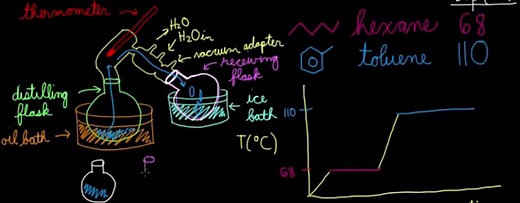 thermometer
H₂O
H₂O in
vacuum adapter
receiving
flask
distilling
flask
oil bath
ice
bath
hexane 68
toluene 110
T(°C)
110
68